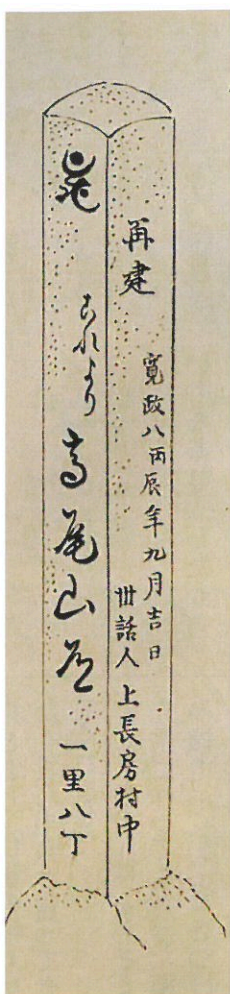 再建
寛政八丙辰年九月吉日
丗話人 上長房村中
これより高尾山道 一里八丁